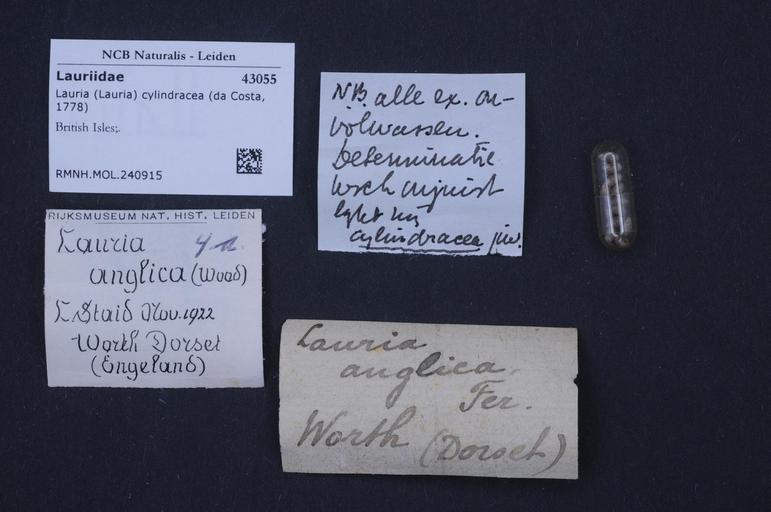 NCB Naturalis - Leiden
Lauriidae 43055
Lauria (Lauria) cylindracea (da Costa,
1778)
British Isles;.
RMNH.MOL.240915
NB. alle ex. on-
volwassen.
Determinatie
onjuist
lijkt mij
cylindracea juv.
RIJKSMUSEUM NAT. HIST. LEIDEN
Lauria
anglica (Wood)
L Staid Nov. 1922
Worth Dorset
(Engeland)
Lauria
anglica.
Fer.
Worth (Dorset)